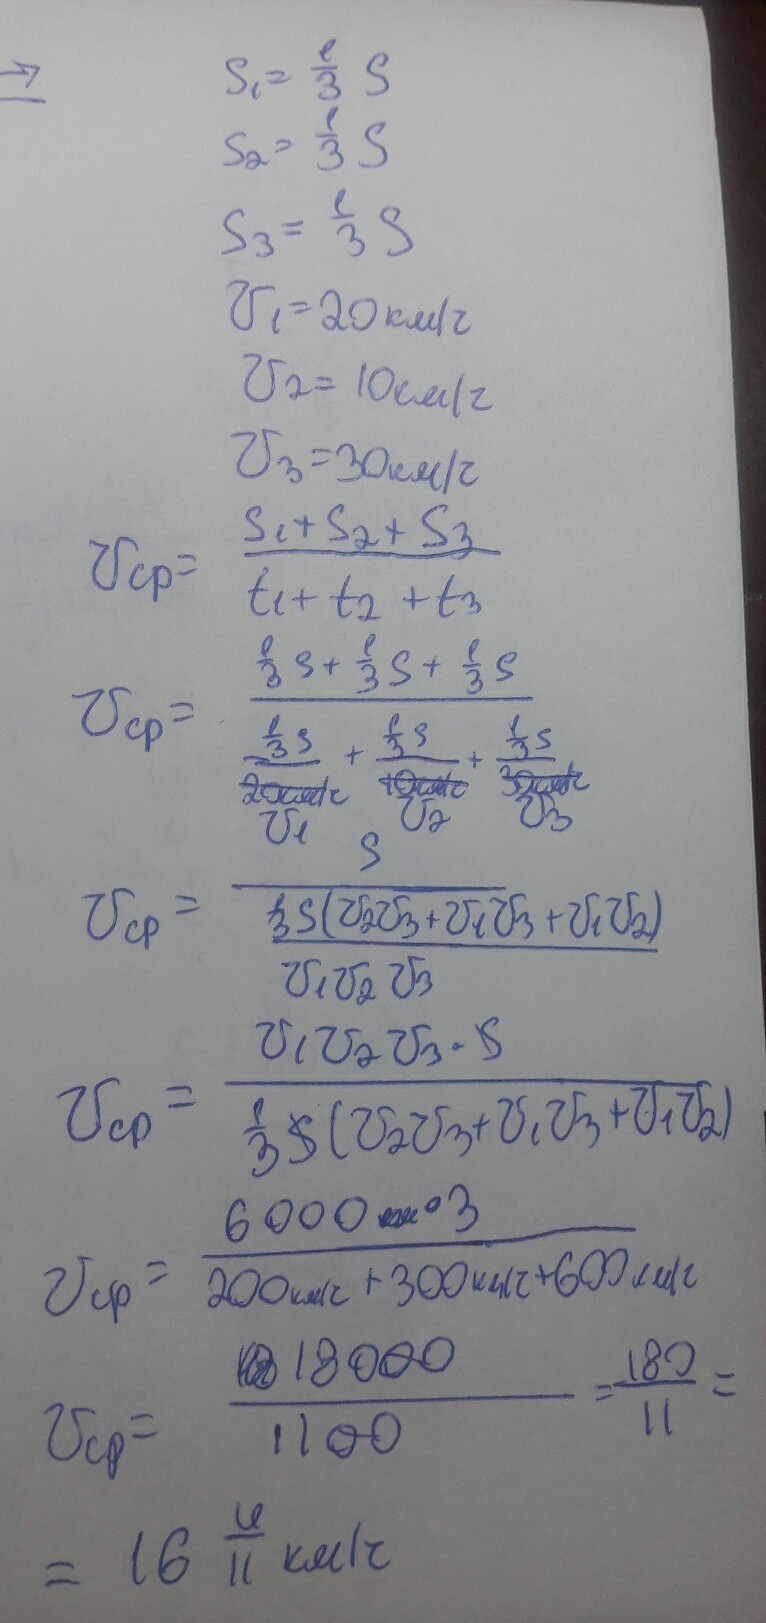 →
S₁ = 1/3 S
S₂ = 1/3 S
S₃ = 1/3 S
V₁ = 20 км/ч
V₂ = 10 км/ч
V₃ = 30 км/ч
Vср = (S₁ + S₂ + S₃) / (t₁ + t₂ + t₃)
Vср = (1/3 S + 1/3 S + 1/3 S) / ((1/3 S)/V₁ + (1/3 S)/V₂ + (1/3 S)/V₃)
Vср = S / ((1/3 S(V₂V₃ + V₁V₃ + V₁V₂)) / (V₁V₂V₃))
Vср = (V₁V₂V₃ · S) / (1/3 S(V₂V₃ + V₁V₃ + V₁V₂))
Vср = (6000 · 3) / (200 км/ч + 300 км/ч + 600 км/ч)
Vср = 18000 / 1100 = 180/11 =
= 16 4/11 км/ч